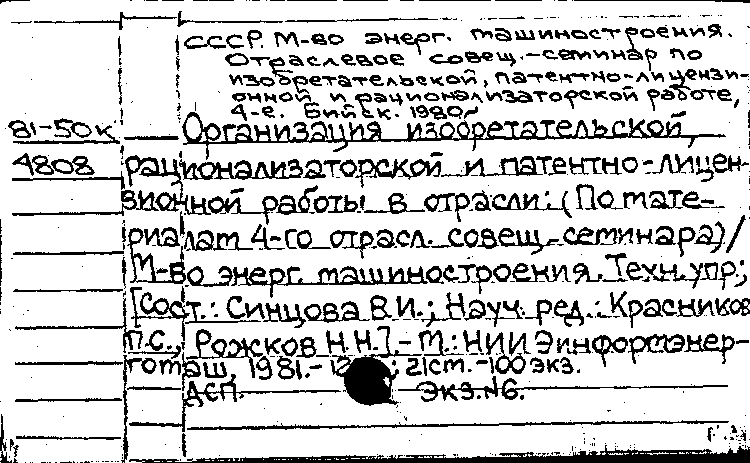 СССР. М-во энерг. машиностроения.
Отраслевое совещ.-семинар по
изобретательской, патентно-лицензи-
онной и рационализаторской работе,
4-е. Бийск. 1980.
81-50к Организация изобретательской,
4808 рационализаторской и патентно-лицен-
зионной работы в отрасли: (По мате-
риалам 4-го отрасл. совещ.-семинара) /
М-во энерг. машиностроения. Техн. упр.;
[Сост.: Синцова В.И.; Науч. ред.: Красников
П.С., Рожков Н.Н.]. - М.: НИИЭинформэнер-
гомаш, 1981.- ; 21см. - 100 экз.
ДСП. Экз. №6.